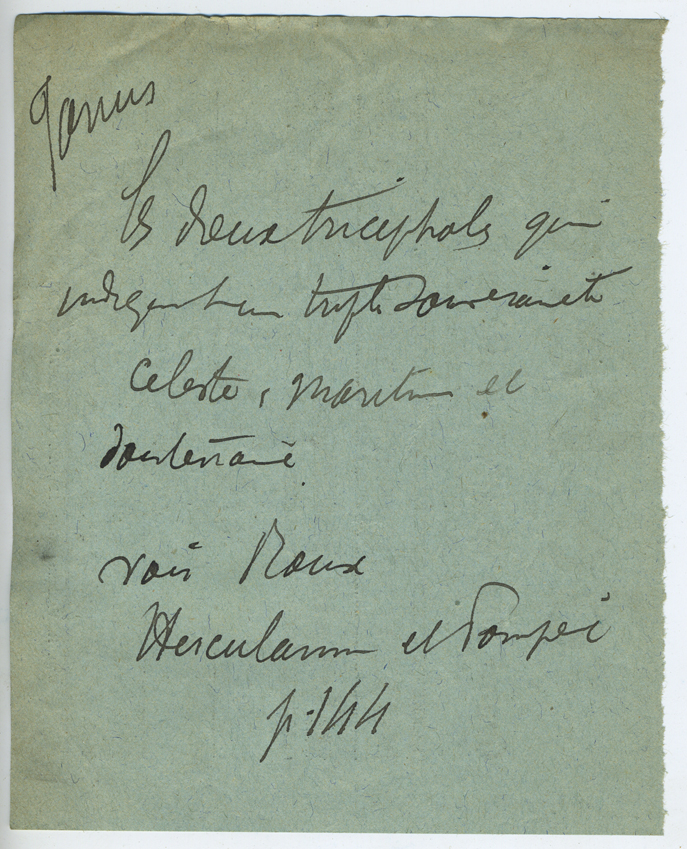 Janus
les dieux tricephales qui
indiquent un triple souveraineté
celeste, maritime et
souterraine
voir Roux
Herculanum et Pompei
p. 144